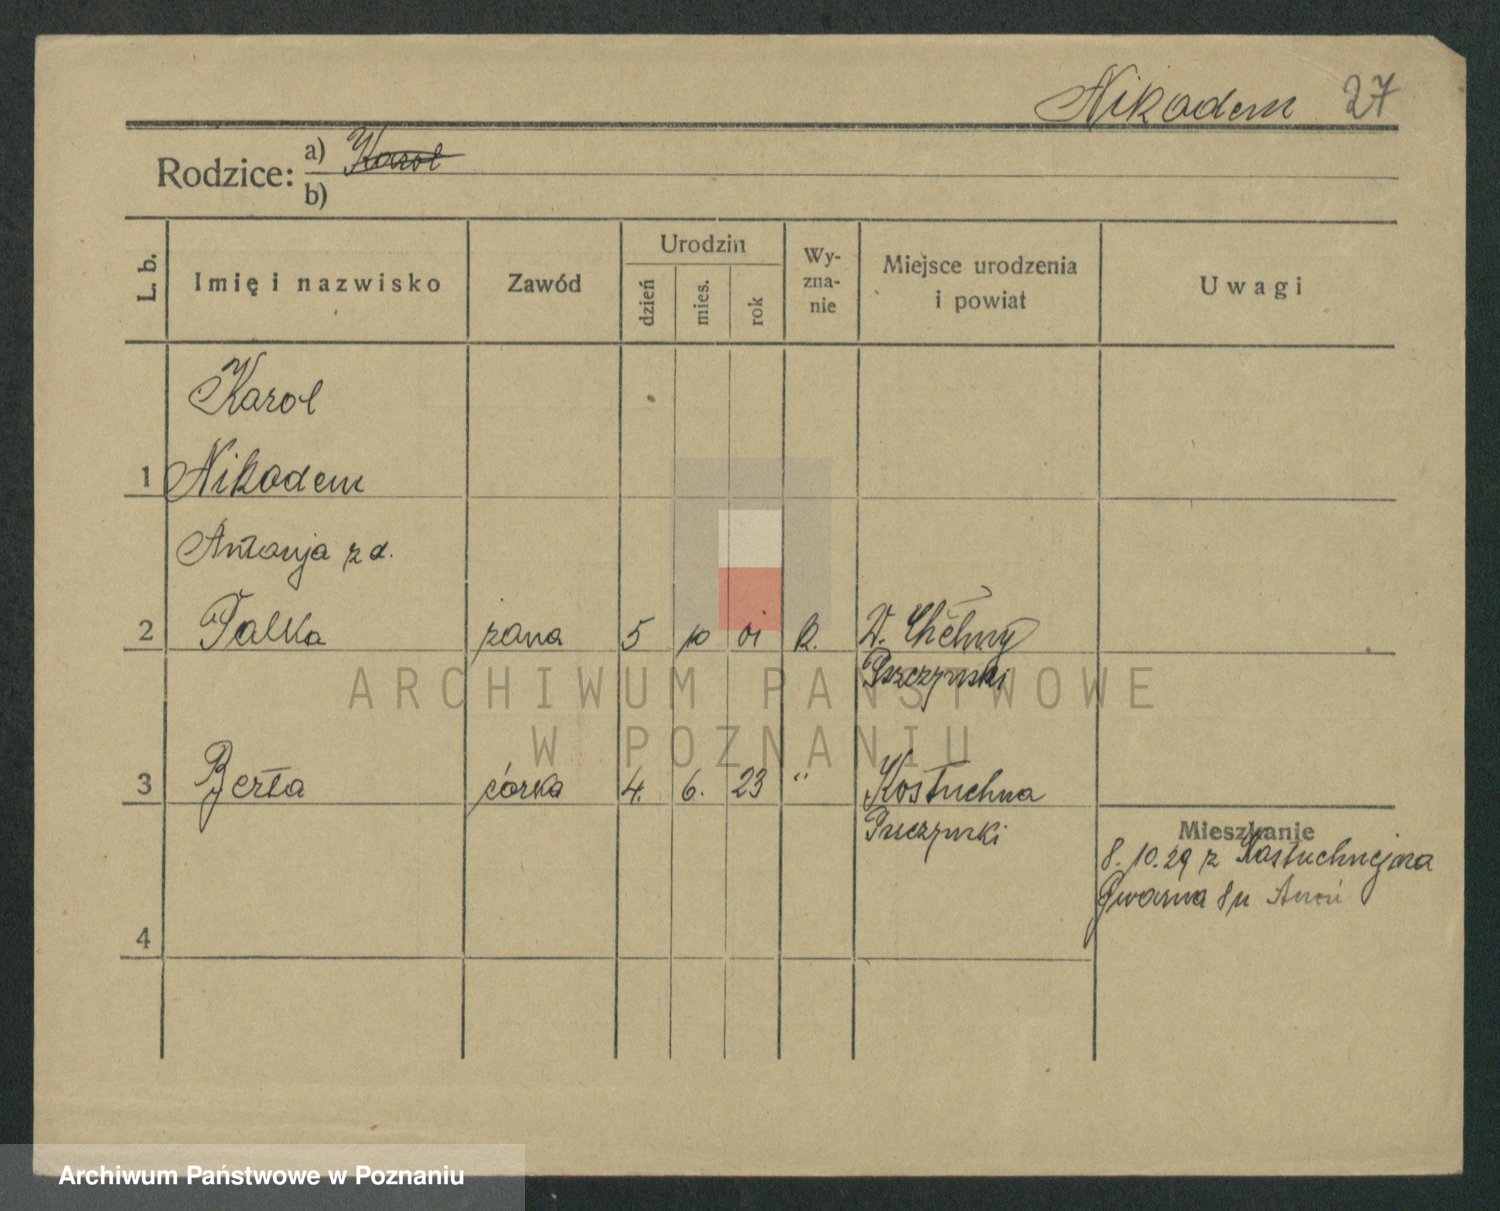 Nikodem 27
Rodzice: a) Karol
b)
L. b. Imię i nazwisko Zawód Urodzin dzień mies. rok Wy-zna-nie Miejsce urodzenia i powiat Uwagi
Karol
1 Nikodem
Antonja z d.
2 Palka żona 5 10 01 k. W. Chełmy
Pszczyński
ARCHIWUM PAŃSTWOWE
W POZNANIU
3 Berta córka 4. 6. 23 " Kostuchna
Pszczyński
Mieszkanie
8.10.29 z Kostuchnej na
Gwarna 8 u
4
Archiwum Państwowe w Poznaniu